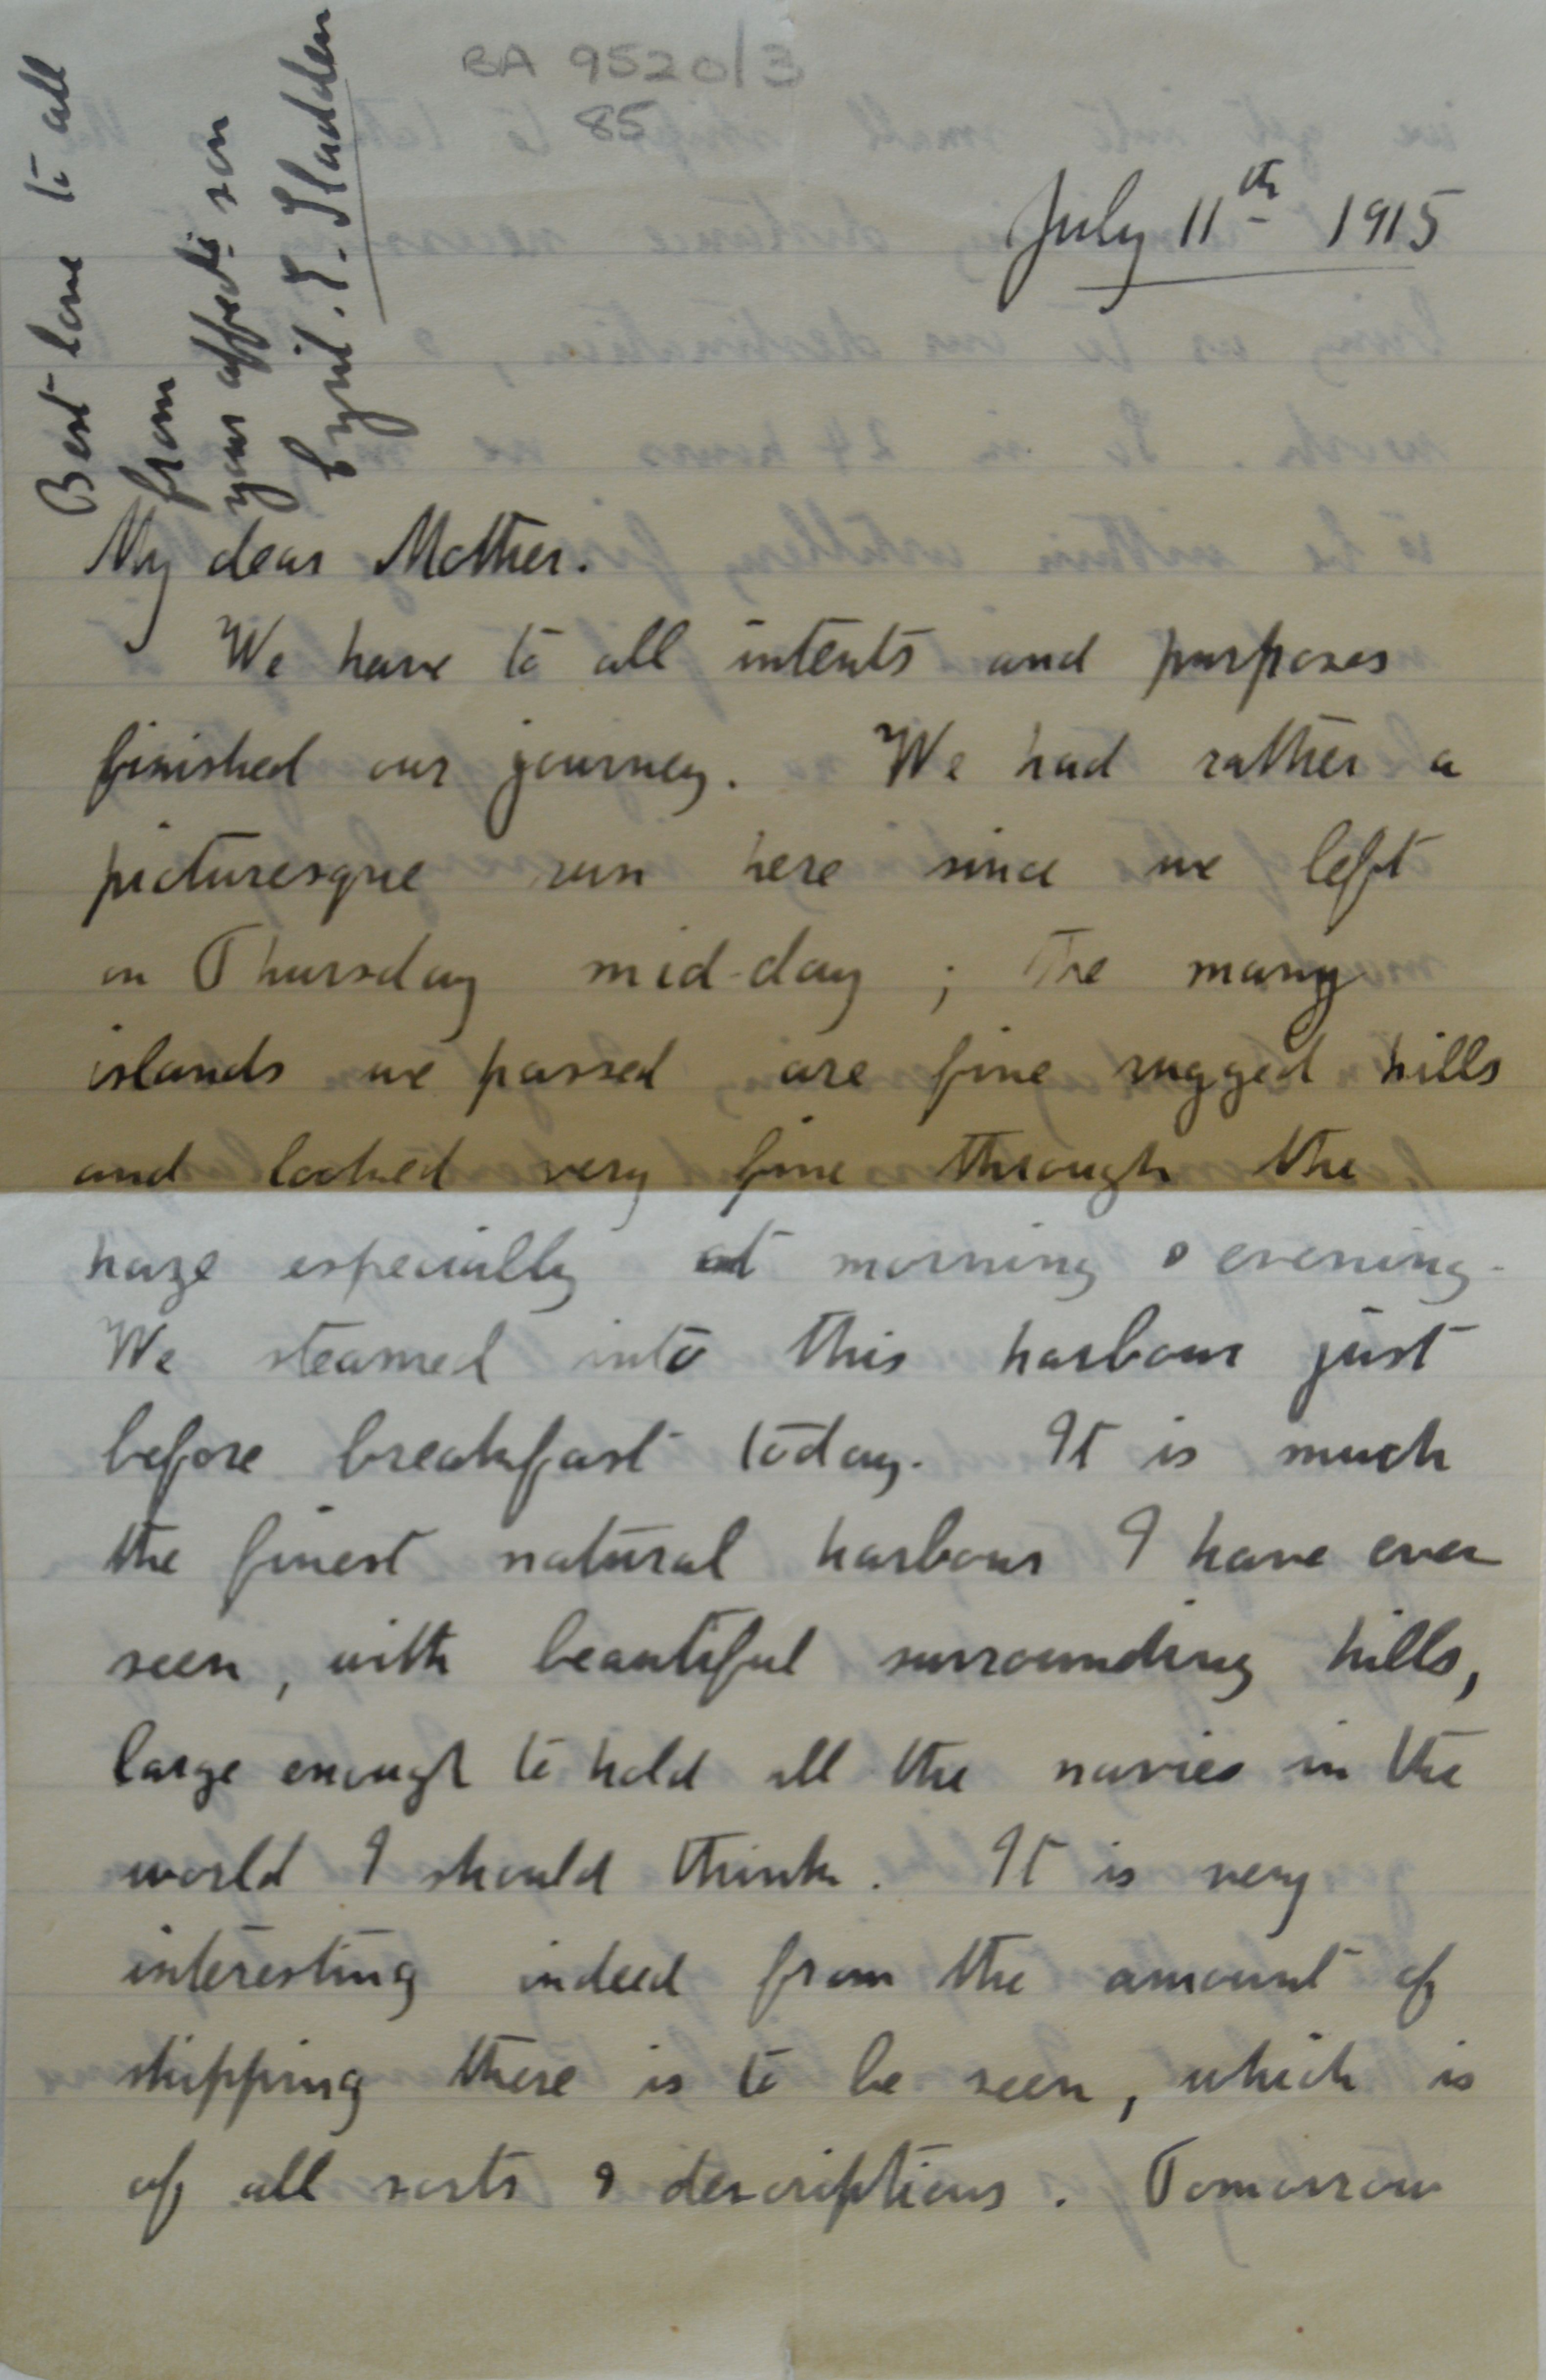 BA 9520/3
85
July 11th 1915
My dear Mother.
We have to all intents and purposes
finished our journey. We had rather a
picturesque run here since we left
on Thursday mid-day ; The many
islands we passed are fine rugged hills
and looked very fine through the
haze especially at morning & evening.
We steamed into this harbour just
before breakfast today. It is much
the finest natural harbour I have ever
seen, with beautiful surrounding hills,
large enough to hold all the navies in the
world I should think. It is very
interesting indeed from the amount of
shipping there is to be seen, which is
of all sorts & descriptions. Tomorrow
Best love to all
from
your affecte. son
Cyril. E. Sladden